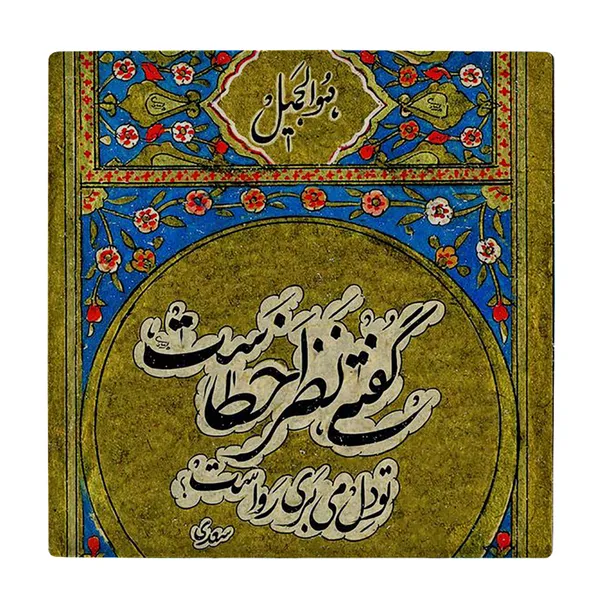 هو الجمیل
گفتی نظر خطاست
تو دل می بری رواست؟
سعدی